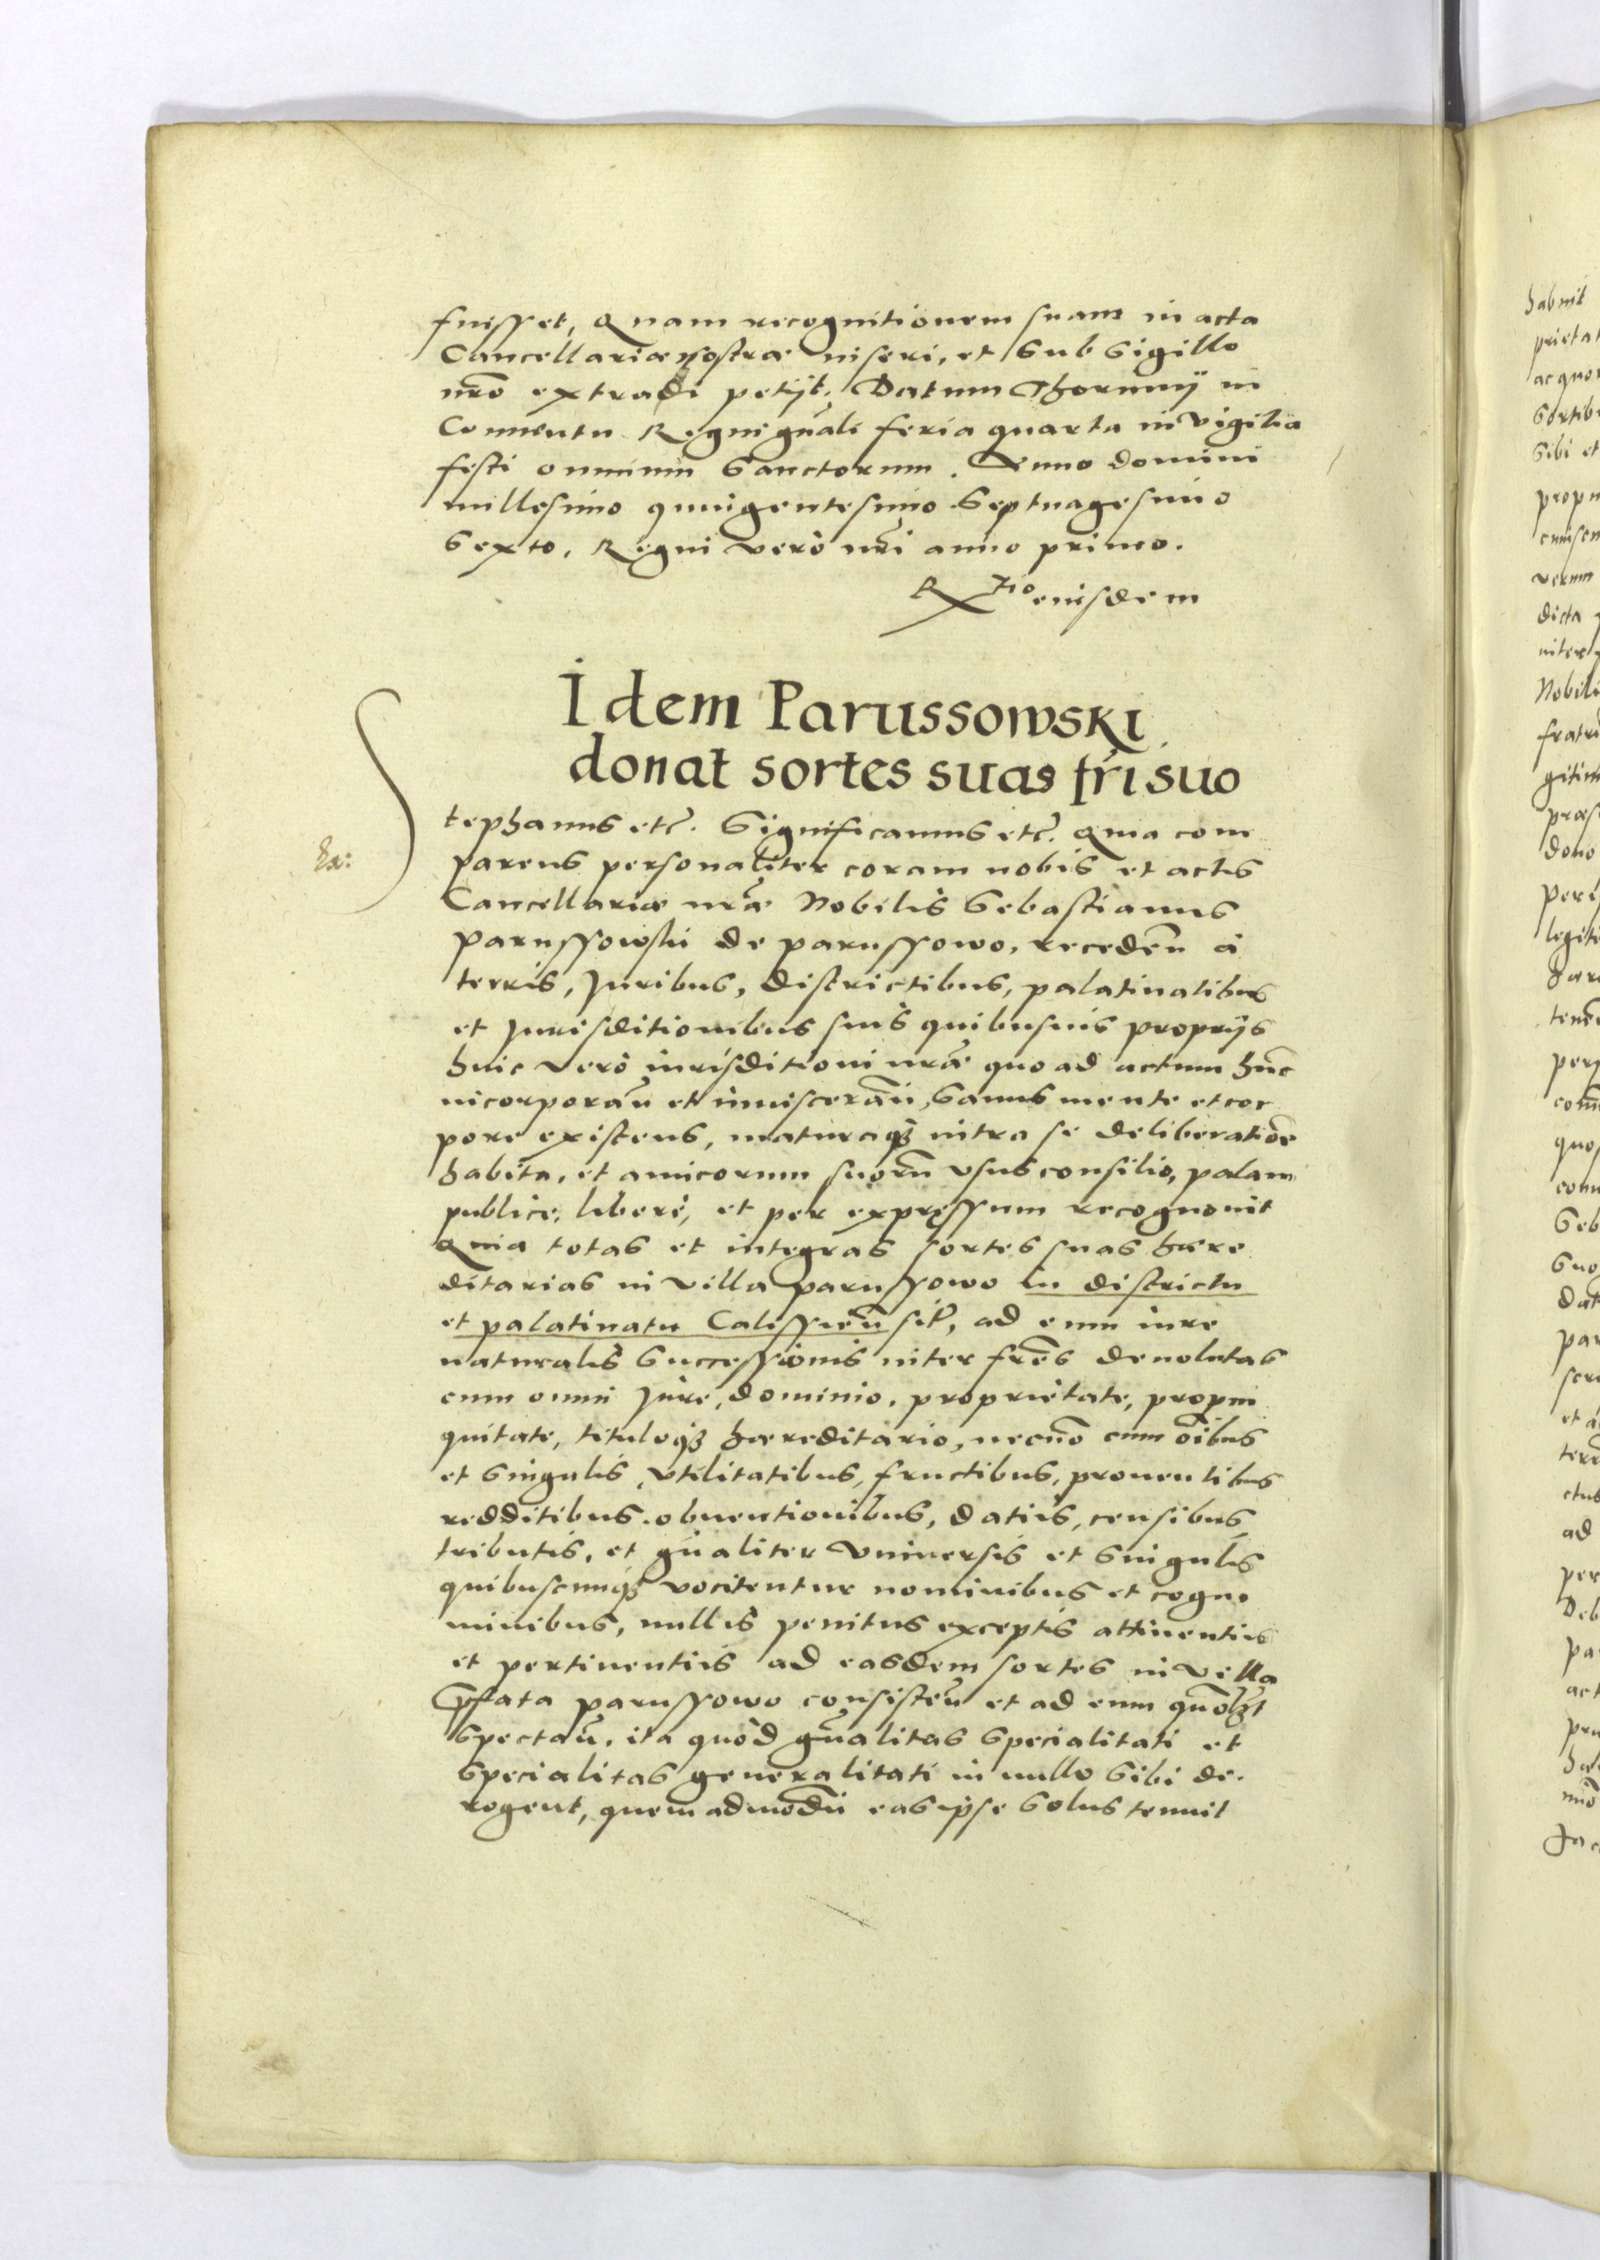 fuisset, Quam recognitionem suam in acta
Cancellariæ nostræ inseri, et sub sigillo
nrō extradi petijt. Datum Thorunij in
Conuentu Regni gn̄ali feria quarta in vigilia
festi omnium sanctorum. Anno domini
millesimo quingentesimo septuagesimo
sexto, Regni verò nr̄i anno primo.
Rtio eiusdem
Idem Parussowski
donat sortes suas fr̄i suo
Stephanus etc̄. Significamus etc̄. Quia com
parens personaliter coram nobis et actis
Cancellariæ nr̄æ Nobilis Sebastianus
Parussowski de parussowo, recedēn à
terris, Juribus, districtibus, palatinatibus
et Jurisditionibus suis quibusuis proprijs
huic verò iurisditioni nr̄æ quo ad actum hūc
incorporān et inuiscerān, sanus mente et cor
pore existens, maturaq; intra se deliberatiōe
habita, et amicorum suorū vsus consilio, palam
publice, liberè, et per expressum recognouit
Quia totas et integras sortes suas hære
ditarias in villa parussowo in districtu
et palatinatu Calissieñ sit̄, ad eum iure
naturalis successionis inter fr̄es deuolutas
cum omni Jure, dominio, proprietate, propin
quitate, tituloq; hæreditario, necnō cum oībus
et singulis, vtilitatibus, fructibus, prouentibus
redditibus. obuentionibus, datiis, censibus
tributis, et gn̄aliter vniuersis et singulis
quibuscunq; vocitentur nominibus et cogno
minibus, nullis penitus exceptis attinentiis
et pertinentiis ad easdem sortes in villa
p̄fata parussowo consistēn et ad eum qūolz̄t
spectān. ita quòd gn̄alitas specialitati et
specialitas generalitati in nullo sibi de.
rogent, quemadmodū eas ipse solus tenuit
Ex:
habuit
prietat
ac quo
sortib
sibi et
propr
cuiscu
verum
dicta
Nobili
fratri
gitim
præs
dono
perp
legiti
tenēn
per
com̄
quos
dat
par
et a
ad
per
Deb
pa
act